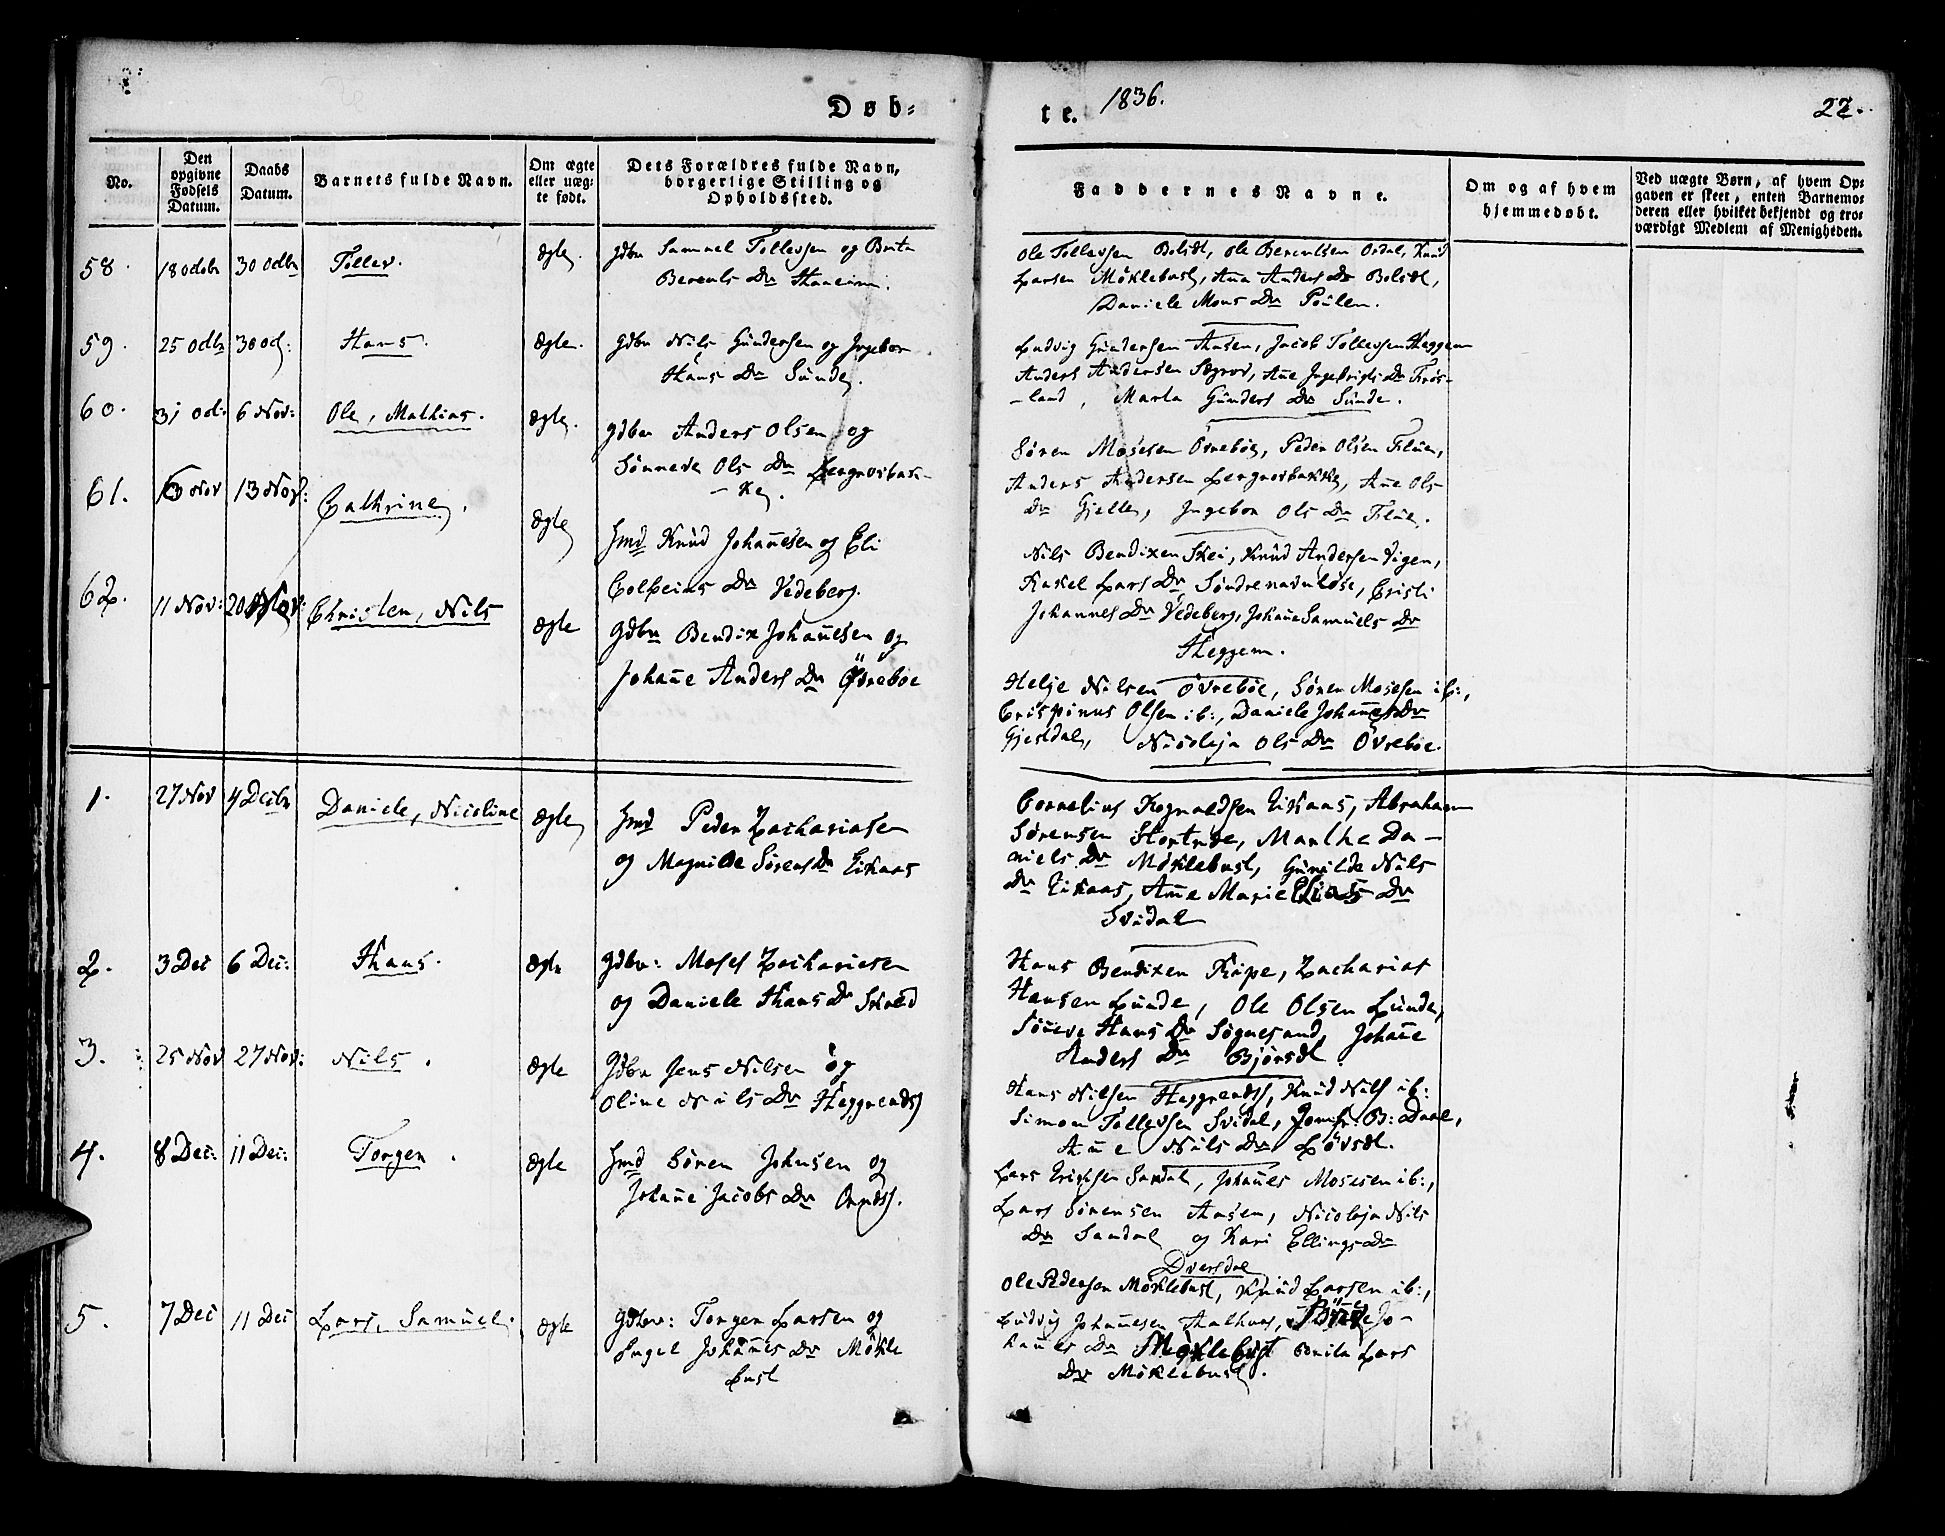 Døb=
te. 1836. 22.
No. Den opgivne Fødsels Datum. Daabs Datum. Barnets fulde Navn. Om ægte eller uæg: te født. Dets Forældres fulde Navn, borgerlige Stilling og Opholdssted.
Faddernes Navne. Om og af hvem hjemmedøbt. Ved uægte Børn, af hvem Op: gaven er skeet, enten Barnemo: deren eller hvilket bekjendt og tro: værdigt Medlem af Menigheden.
58. 18 Octbr 30 Octbr Tollev. Ægte. Gdbr Samuel Tollevsen og Brita
Berents Dr
Ole Tollevsen Ole Berentsen Knud
Larsen Møklebust, Ane Anders Dr
Daniele Mons Dr
59. 25 Octbr 30 Oct: Hans. Ægte. Gdbr Nils Gundersen og Ingebor
Hans Dr Sunde.
Ludvig Gundersen Aasen, Jacob Tollevsen Heggem
Anders Andersen Ane Ingebrigts Dr Frøs-
-land, Marta Gunders Dr Sunde.
60. 31 Oct: 6 Nov: Ole, Mathias. Ægte. Gdbr Anders Olsen og
Sønneve Ols Dr
-ke.
Søren Mosesen Øvrebøe, Peder Olsen Flüe,
Anders Andersen Ane Ols
Dr Gjelle, Ingebor Ols Dr Flüe.
61. Nov 13 Nov: Cathrine. Ægte Hmd Knud Johannesen og Eli
Dr Vedeberg.
Nils Bendixen Skei, Knud Andersen Vigen,
Lars Dr Søndrenavnløse, Cristi
Johannes Dr Vedeberg, Johane Samuels Dr
Heggem.
62. 11 Nov: 20 Nov: Christen, Nils Ægte Gdbr Bendix Johannesen og
Johanne Anders Dr Øvrebøe
Helje Nilsen Øvrebøe, Søren Mosesen ib:,
Crispinus Olsen ib:, Daniele Johannes Dr
Gjesdal, Nicoleja Ols Dr Øvrebøe.
1. 27 Nov 4 Decbr Daniele, Nicoline Ægte Hmd Peder Zachariasen
og Magnilde Sørens Dr Eikaas
Cornelius Rognaldsen Eikaas, Abraham
Sørensen Marthe Da-
niels Dr Møklebust, Gunilde Nils
Dr Eikaas, Ane Marie Elias Dr
Svidal
2. 3 Dec 6 Dec: Hans. Ægte Gdbr: Moses Zachariesen
og Daniele Hans Dr
Hans Bendixen Zacharias
Hansen Lunde, Ole Olsen Lunde,
Sønneve Hans Dr Søgnesand, Johanne
Anders Dr
3. 25 Nov 27 Nov: Nils. Ægte Gdbr Jens Nilsen og
Oline Nils Dr
Hans Nilsen Knud Nils ib:
Simon Tollevsen Svidal,
Ane Nils Dr
4. 8 Dec: 11 Dec: Torger. Ægte Hmd Søren Johnsen og
Johanne Jacobs Dr
Lars Erichsen Sandal, Johannes Mosesen ib:,
Lars Sørensen Aasen, Nicoleja Nils
Dr Sandal og Kari Ellings Dr
Dversdal
5. 7 Dec 11 Dec Lars, Samuel. Ægte Gdbr: Torger Larsen og
Ingel Johannes Dr Møkle
bust
Ole Pedersen Møklebust, Knud Larsen ib:,
Ludvig Johannesen Jo-
hannes Dr Møklebust Lars
Dr Møklebust.